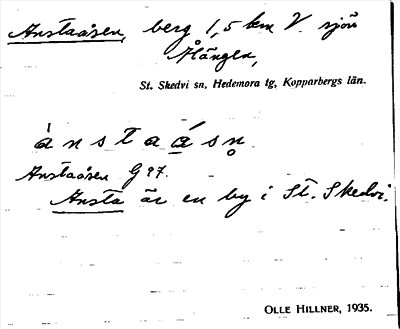 Anstaåsen, berg 1,5 km V. sjön
Lången,
St. Skedvi sn, Hedemora tg, Kopparbergs län.
ànstaá̱sn̥
Anstaåsen G 97.
Ansta är en by i St. Skedvi.
OLLE HILLNER, 1935.